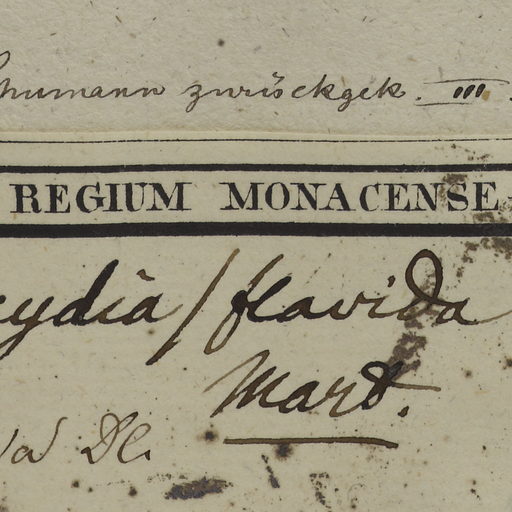 humann zurückgek. III
REGIUM MONACENSE
cydia / flavida
Mart.